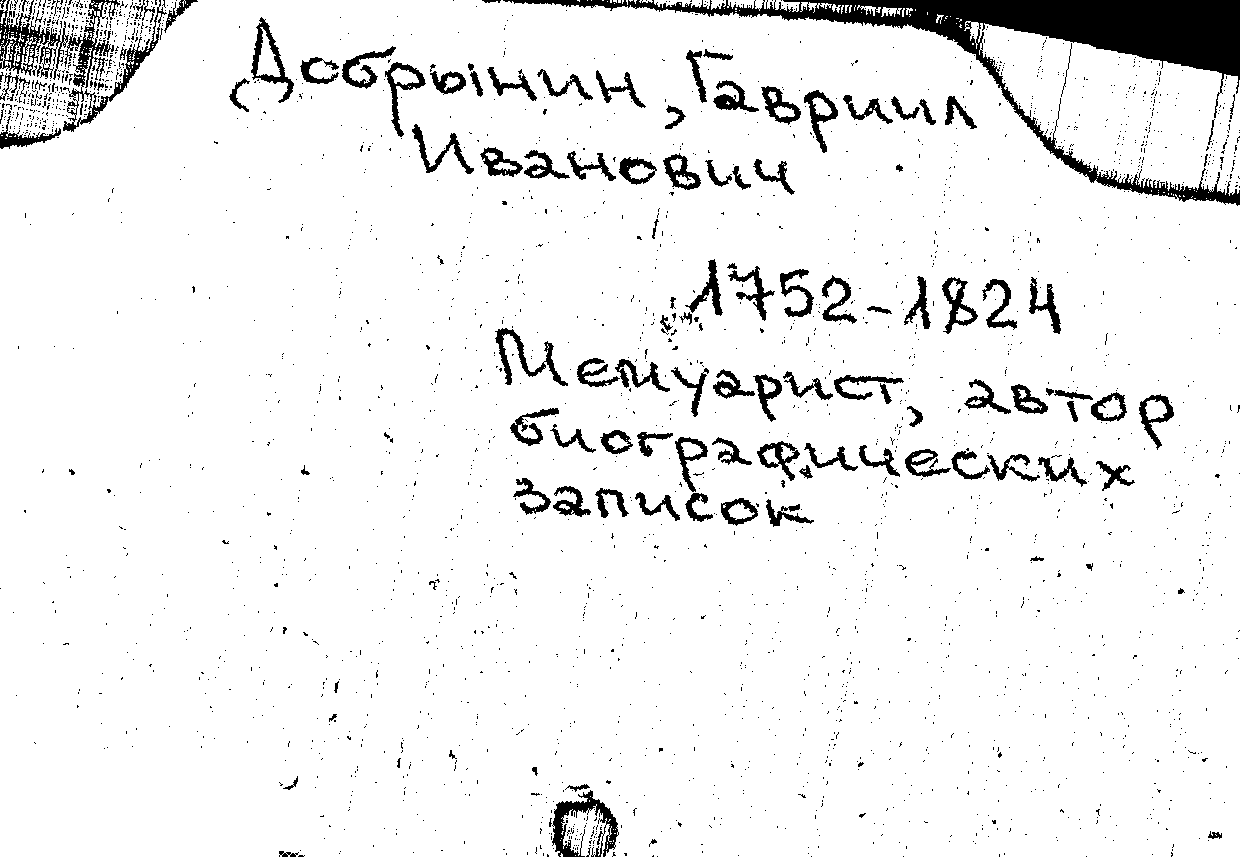 Добрынин, Гавриил
Иванович
1752-1824
Мемуарист, автор
биографических
записок